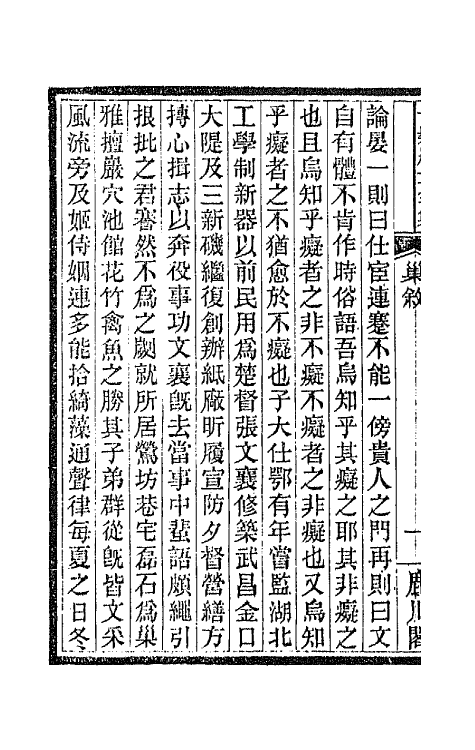 巢敘
一
論晏一則曰仕宦連蹇不能一傍貴人之門再則曰文
自有體不肯作時俗語吾烏知乎其癡之耶其非癡之
也且烏知乎癡者之非不癡不癡者之非癡也又烏知
乎癡者之不猶愈於不癡也子大仕鄂有年嘗監湖北
工學制新器以前民用爲楚督張文襄修築武昌金口
大隄及三新磯繼復創辦紙廠昕履宣防夕督營繕方
摶心揖志以奔役事功文襄旣去當事中蜚語頗繩引
拫批之君謇然不爲之劌就所居鶯坊巷宅磊石爲巢
雅擅巖穴池館花竹禽魚之勝其子弟群從旣皆文采
風流旁及姬侍婣連多能拾綺藻通聲律每夏之日冬